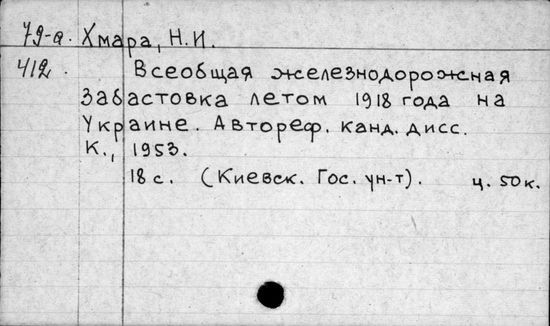 79-а. Хмара, Н.И.
412. Всеобщая железнодорожная
забастовка летом 1918 года на
Украине. Автореф. канд. дисс.
К., 1953.
18 с. (Киевск. Гос. ун-т). ц. 50к.